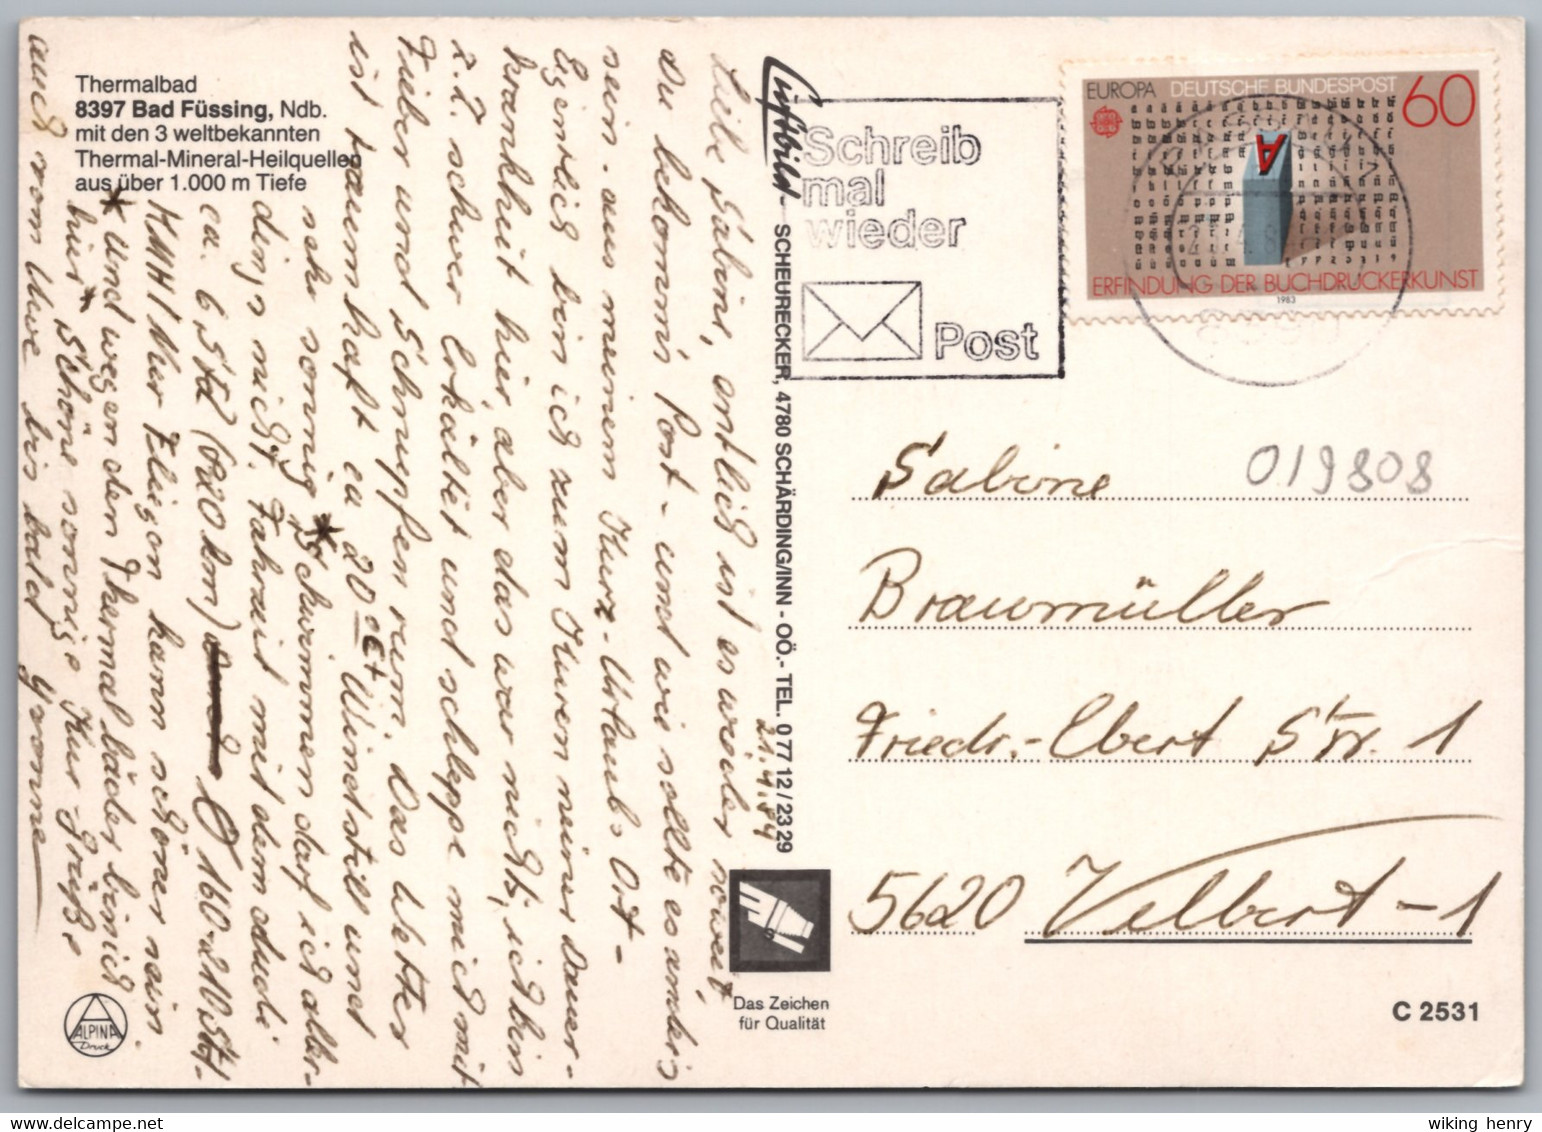 Thermalbad
8397 Bad Füssing, Ndb.
mit den 3 weltbekannten
Thermal-Mineral-Heilquellen
aus über 1.000 m Tiefe
21.4.84
Liebe Sabine, endlich ist es wieder soweit,
Du bekommst Post - und wie sollte es anders
sein - aus meinem Kurz-Urlaubs Ort -
Eigentlich bin ich zum Kuren meiner Dauer-
krankheit hier, aber das war nichts, ich bin
z.Z. schwer erkältet und schleppe mich mit
Fieber und Schnupfen rum. Das Wetter
ist traumhaft ca 20°C + Windstill und
sehr sonnig * Schwimmen darf ich aller-
dings nicht. Fahrzeit mit dem Audi
ca. 6 Std (820 km) Ø 160-210 St/
KM H! Nur Fliegen kann schöner sein.
* Und wegen der Thermalbäder bin ich
hier * Schöne sonnige Kur-Grüße
auch von Uwe bis bald Yvonne
Luftbild
SCHEURECKER, 4780 SCHÄRDING/INN - OÖ.- TEL. 0 77 12 / 23 29
Das Zeichen
für Qualität
ALPINA
Druck
Schreib
mal
wieder
Post
EUROPA DEUTSCHE BUNDESPOST
60
A
ERFINDUNG DER BUCHDRUCKERKUNST
1983
019808
Sabine
Braumüller
Friedr.-Ebert Str. 1
5620 Velbert-1
C 2531
wiking henry